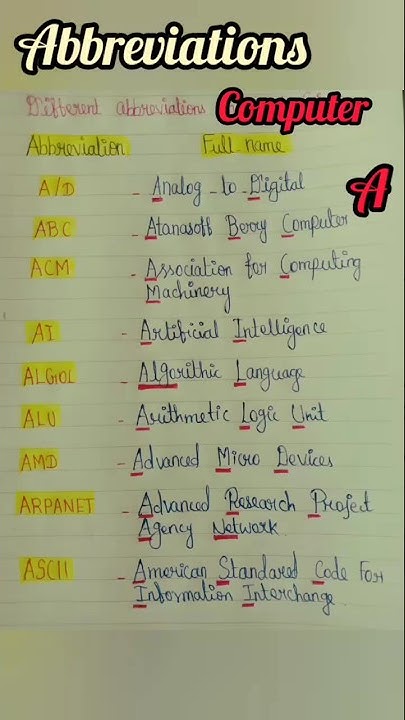 Abbreviations
Different abbreviations Computer
Abbreviation Full name
A
A/D - Analog-to-Digital
ABC - Atanasoft Berry Computer
ACM - Association for Computing
Machinery
AI - Artificial Intelligence
ALGOL - ALGorithic Language
ALU - Arithmetic Logic Unit
AMD - Advanced Micro Devices
ARPANET - Advanced Research Project
Agency Network
ASCII - American Standared Code For
Information Interchange